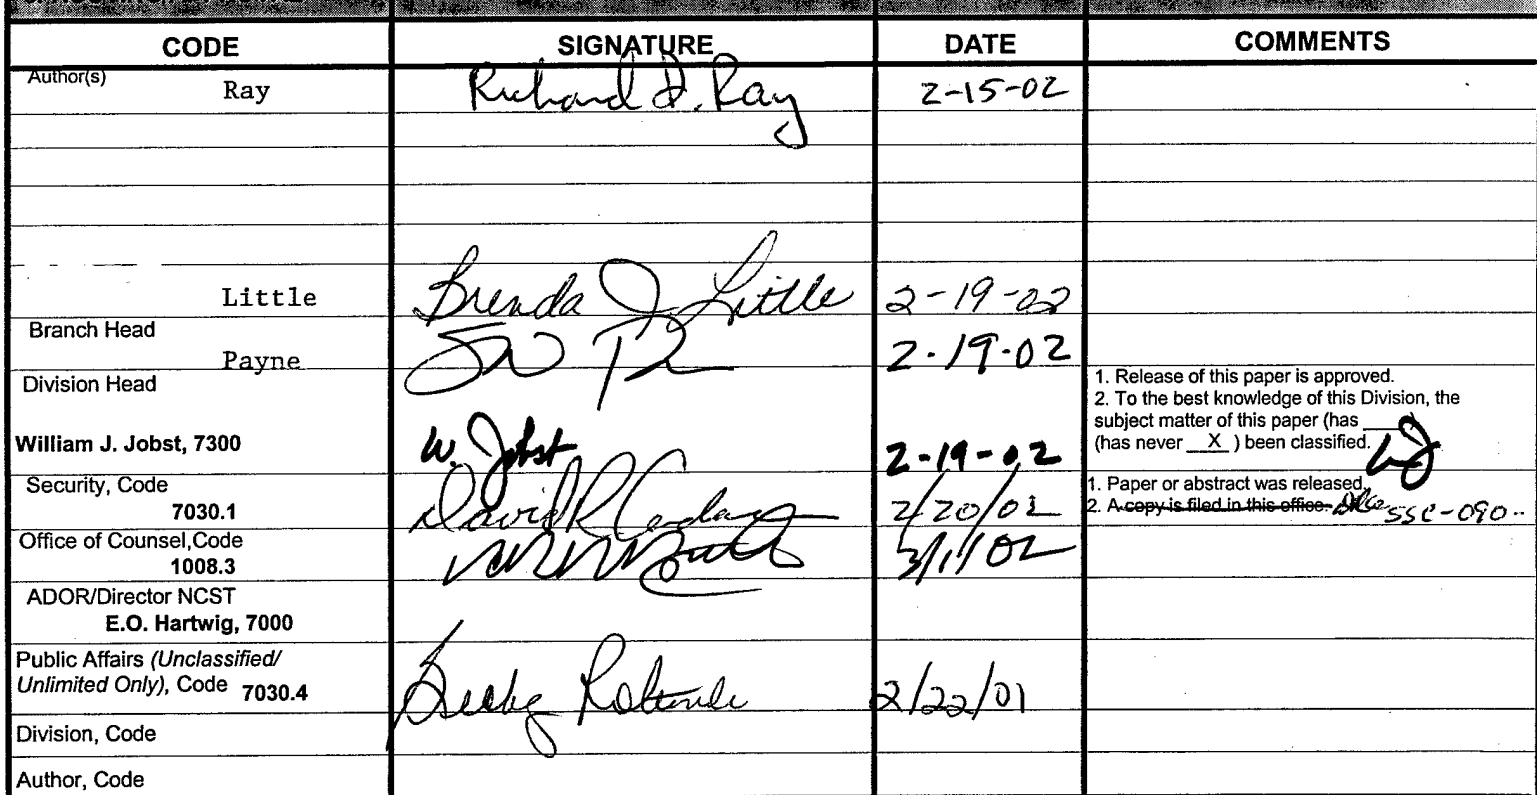 CODE SIGNATURE DATE COMMENTS
Author(s)
Ray Richard I. Ray 2-15-02
Little Brenda J Little 2-19-02
Branch Head
Payne 2.19.02
Division Head
1. Release of this paper is approved.
2. To the best knowledge of this Division, the
subject matter of this paper (has ____)
(has never X ) been classified.
William J. Jobst, 7300 W. Jobst 2-19-02 WJ
Security, Code
7030.1 David R 2/20/02
1. Paper or abstract was released.
2. A copy is filed in this office. SSC-090..
Office of Counsel,Code
1008.3 3/1/02
ADOR/Director NCST
E.O. Hartwig, 7000
Public Affairs (Unclassified/
Unlimited Only), Code 7030.4 2/22/01
Division, Code
Author, Code